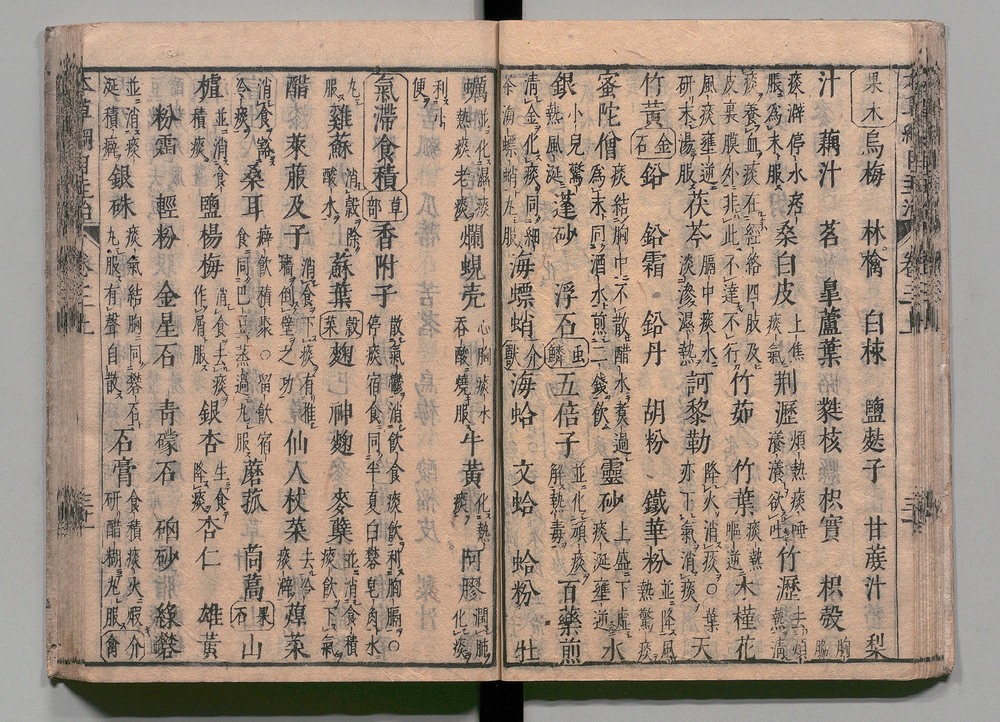 果木 烏梅 林檎 白楝 鹽麩子 甘蔗汁 梨
汁 藕汁 茗 皐蘆葉 蕤核 枳實 枳殼 胸
痰澼停水痞脹為末服 桑白皮 上焦痰氣 荆瀝 煩熱痰唾漾漾欲吐 竹瀝 去煩熱清
痰養血痰在經絡四肢及皮裏膜外非此不達不行 竹茹 竹葉 痰熱嘔逆 木槿花
風痰壅逆研末湯服 茯苓 膈中痰水淡滲濕熱 訶黎勒 降火消痰○葉亦下氣消痰 天
竹黃 金石 鉛 鉛霜 鉛丹 胡粉 鐵華粉 並降風熱驚痰
蜜陀僧 痰結胸中不散醋水煮過為末同酒水煎二錢飲 靈砂 上盛下虛痰涎壅逆 水
銀 小兒驚熱風涎 蓬砂 浮石 虫鱗 五倍子 並化頑痰解熱毒 百藥煎
清金化痰同細茶海螵蛸丸服 海螵蛸 介獸 海蛤 文蛤 蛤粉 牡
蠣 並化濕痰熱痰老痰 爛蜆壳 心胸痰水吞酸燒服 牛黃 化熱痰 阿膠 潤肺化痰
利小便
氣滯食積 草部 香附子 散氣鬱消飲食痰飲利胸膈○停痰宿食同半夏白礬皂肉水
丸服 雞蘇 消穀除酸水 蘇葉 穀菜 麹 神麹 麥蘗 並消食積痰飲下氣
醋 萊菔及子 消食下痰有推墻倒壁之功 仙人杖菜 去冷痰澼 蕈菜
消食豁冷痰 桑耳 癖飲積聚○留飲宿食同巴豆蒸過丸服 蘑菰 茼蒿 果石 山
樝 並消食積痰 鹽楊梅 消食去痰作屑服 銀杏 生食降痰 杏仁 雄黃
粉霜 輕粉 金星石 青礞石 硇砂 綠礬
並消痰涎積癖 銀硃 痰氣結胸同礬石丸服有聲自散 石膏 食積痰火煆研醋糊丸服 介禽